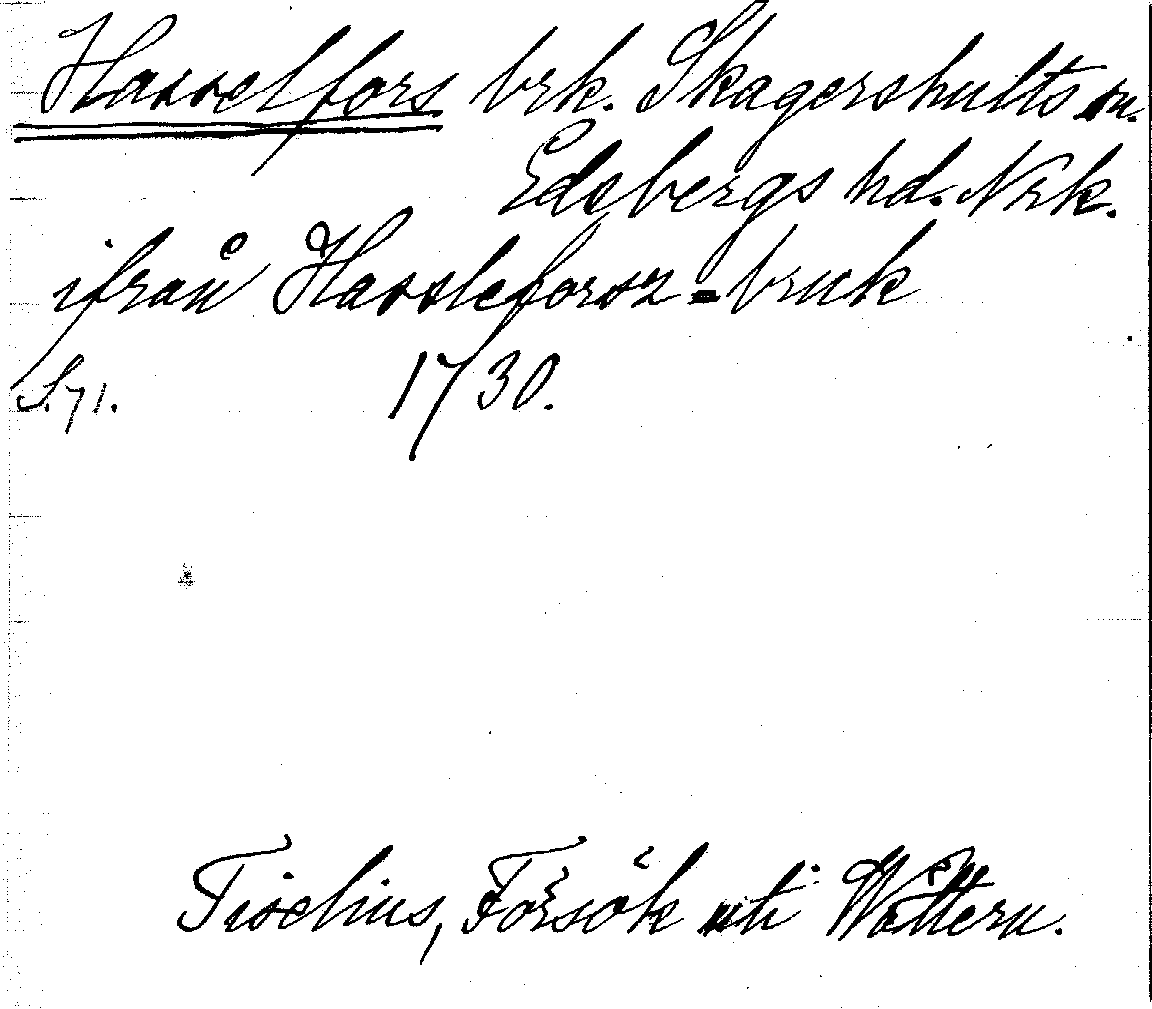 Hasselfors brk. Skagershults sn.
Edsbergs hd. Nrk.
ifrån Hassleforsz=bruk
S. 71. 1730.
Tiselius, Försök uti Wättern.